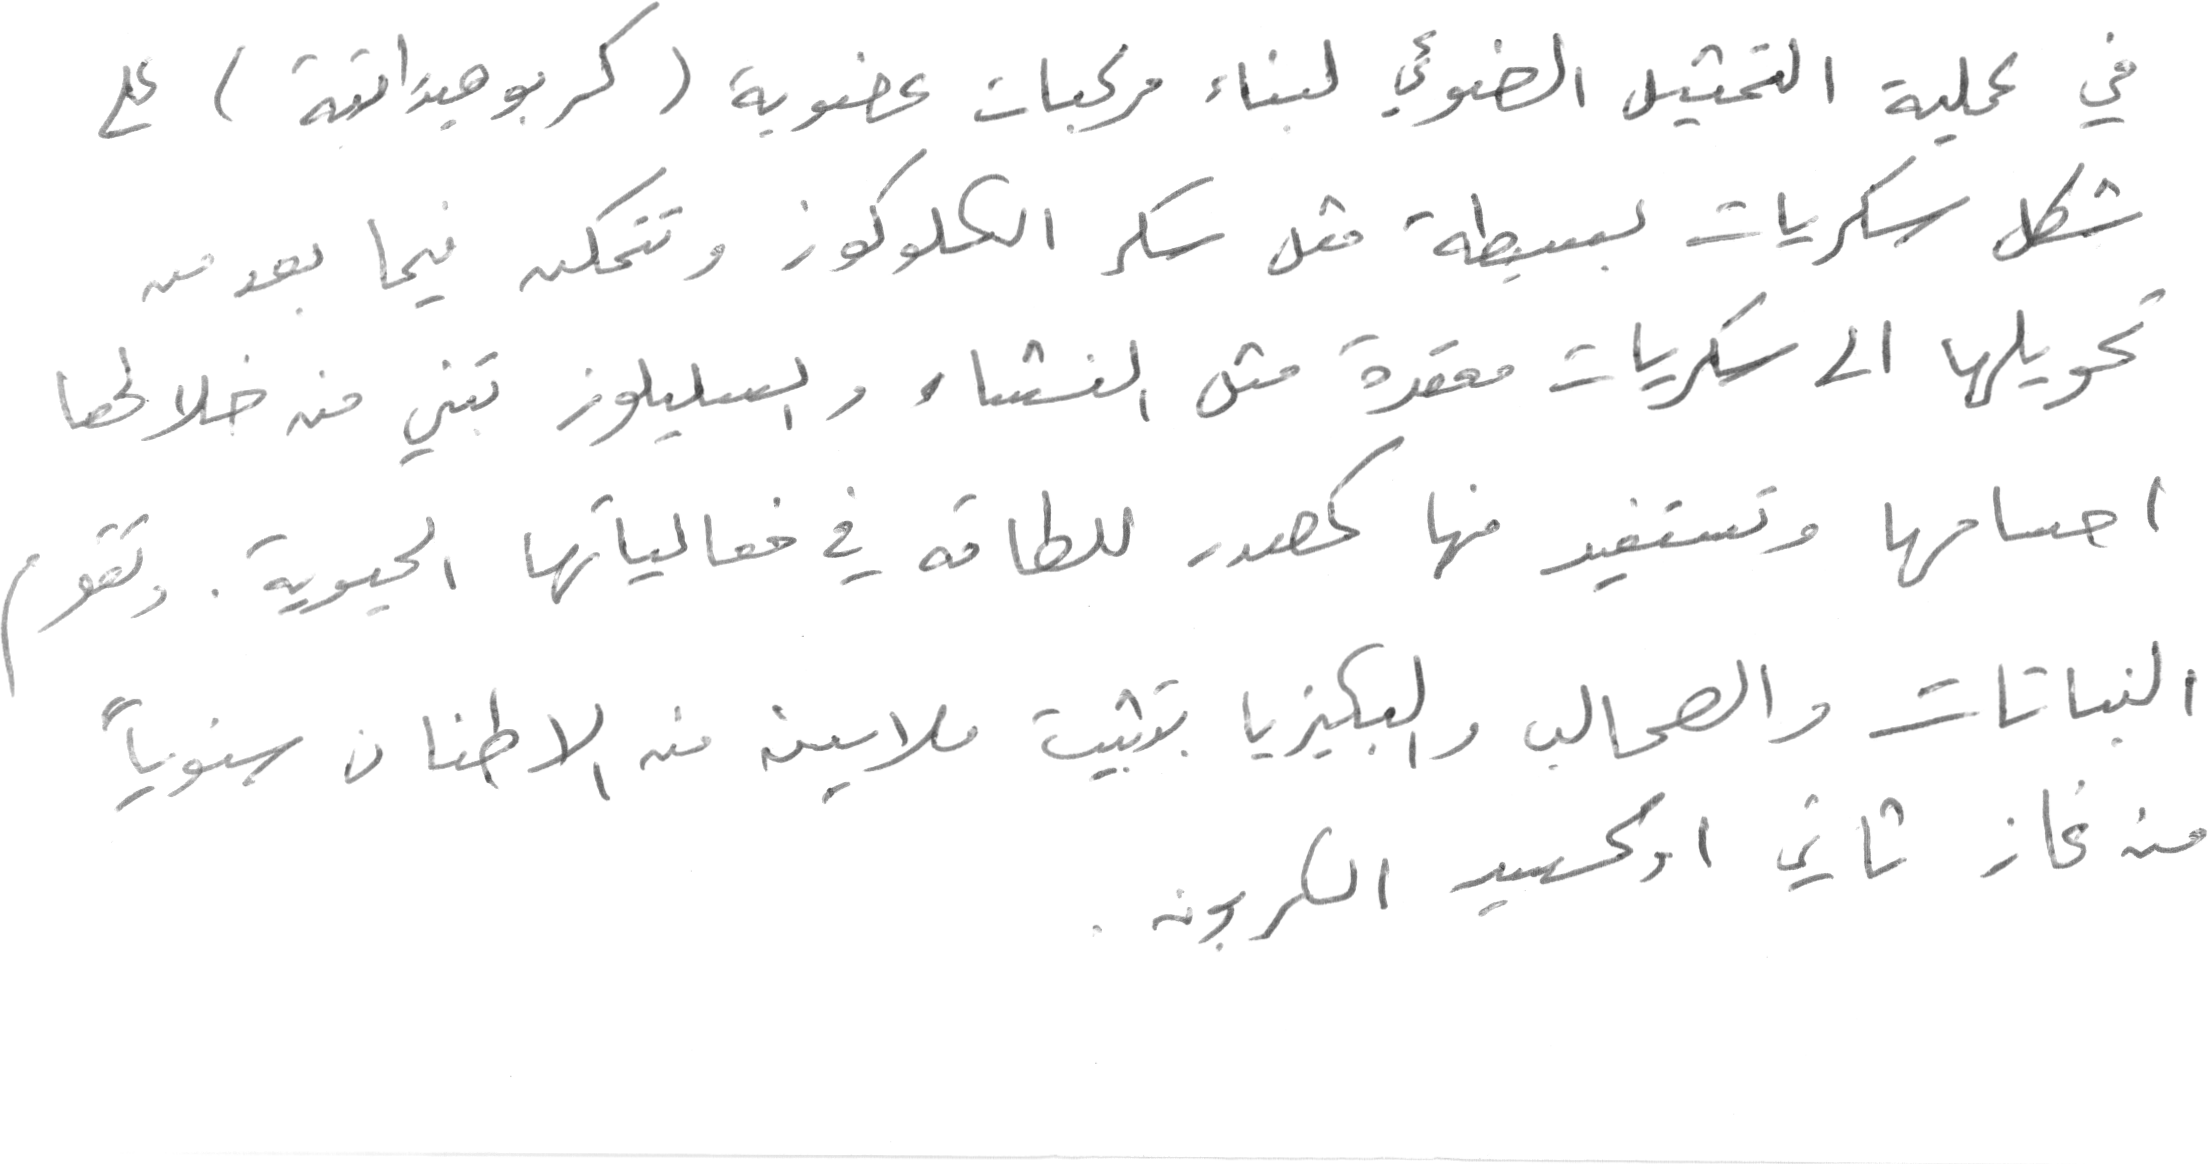 في عملية التمثيل الضوئي لبناء مركبات عضوية (كربوهيدراتية) على
شكل سكريات بسيطة مثل سكر الكلوكوز وتتمكن فيما بعد من
تحويلها الى سكريات معقدة مثل النشاء والسليلوز تبني من خلالها
اجسامها وتستفيد منها كمصدر للطاقة في فعالياتها الحيوية. وتقوم
النباتات والطحالب والبكتيريا بتثبيت ملايين من الاطنان سنوياً
من غاز ثاني اوكسيد الكربون.